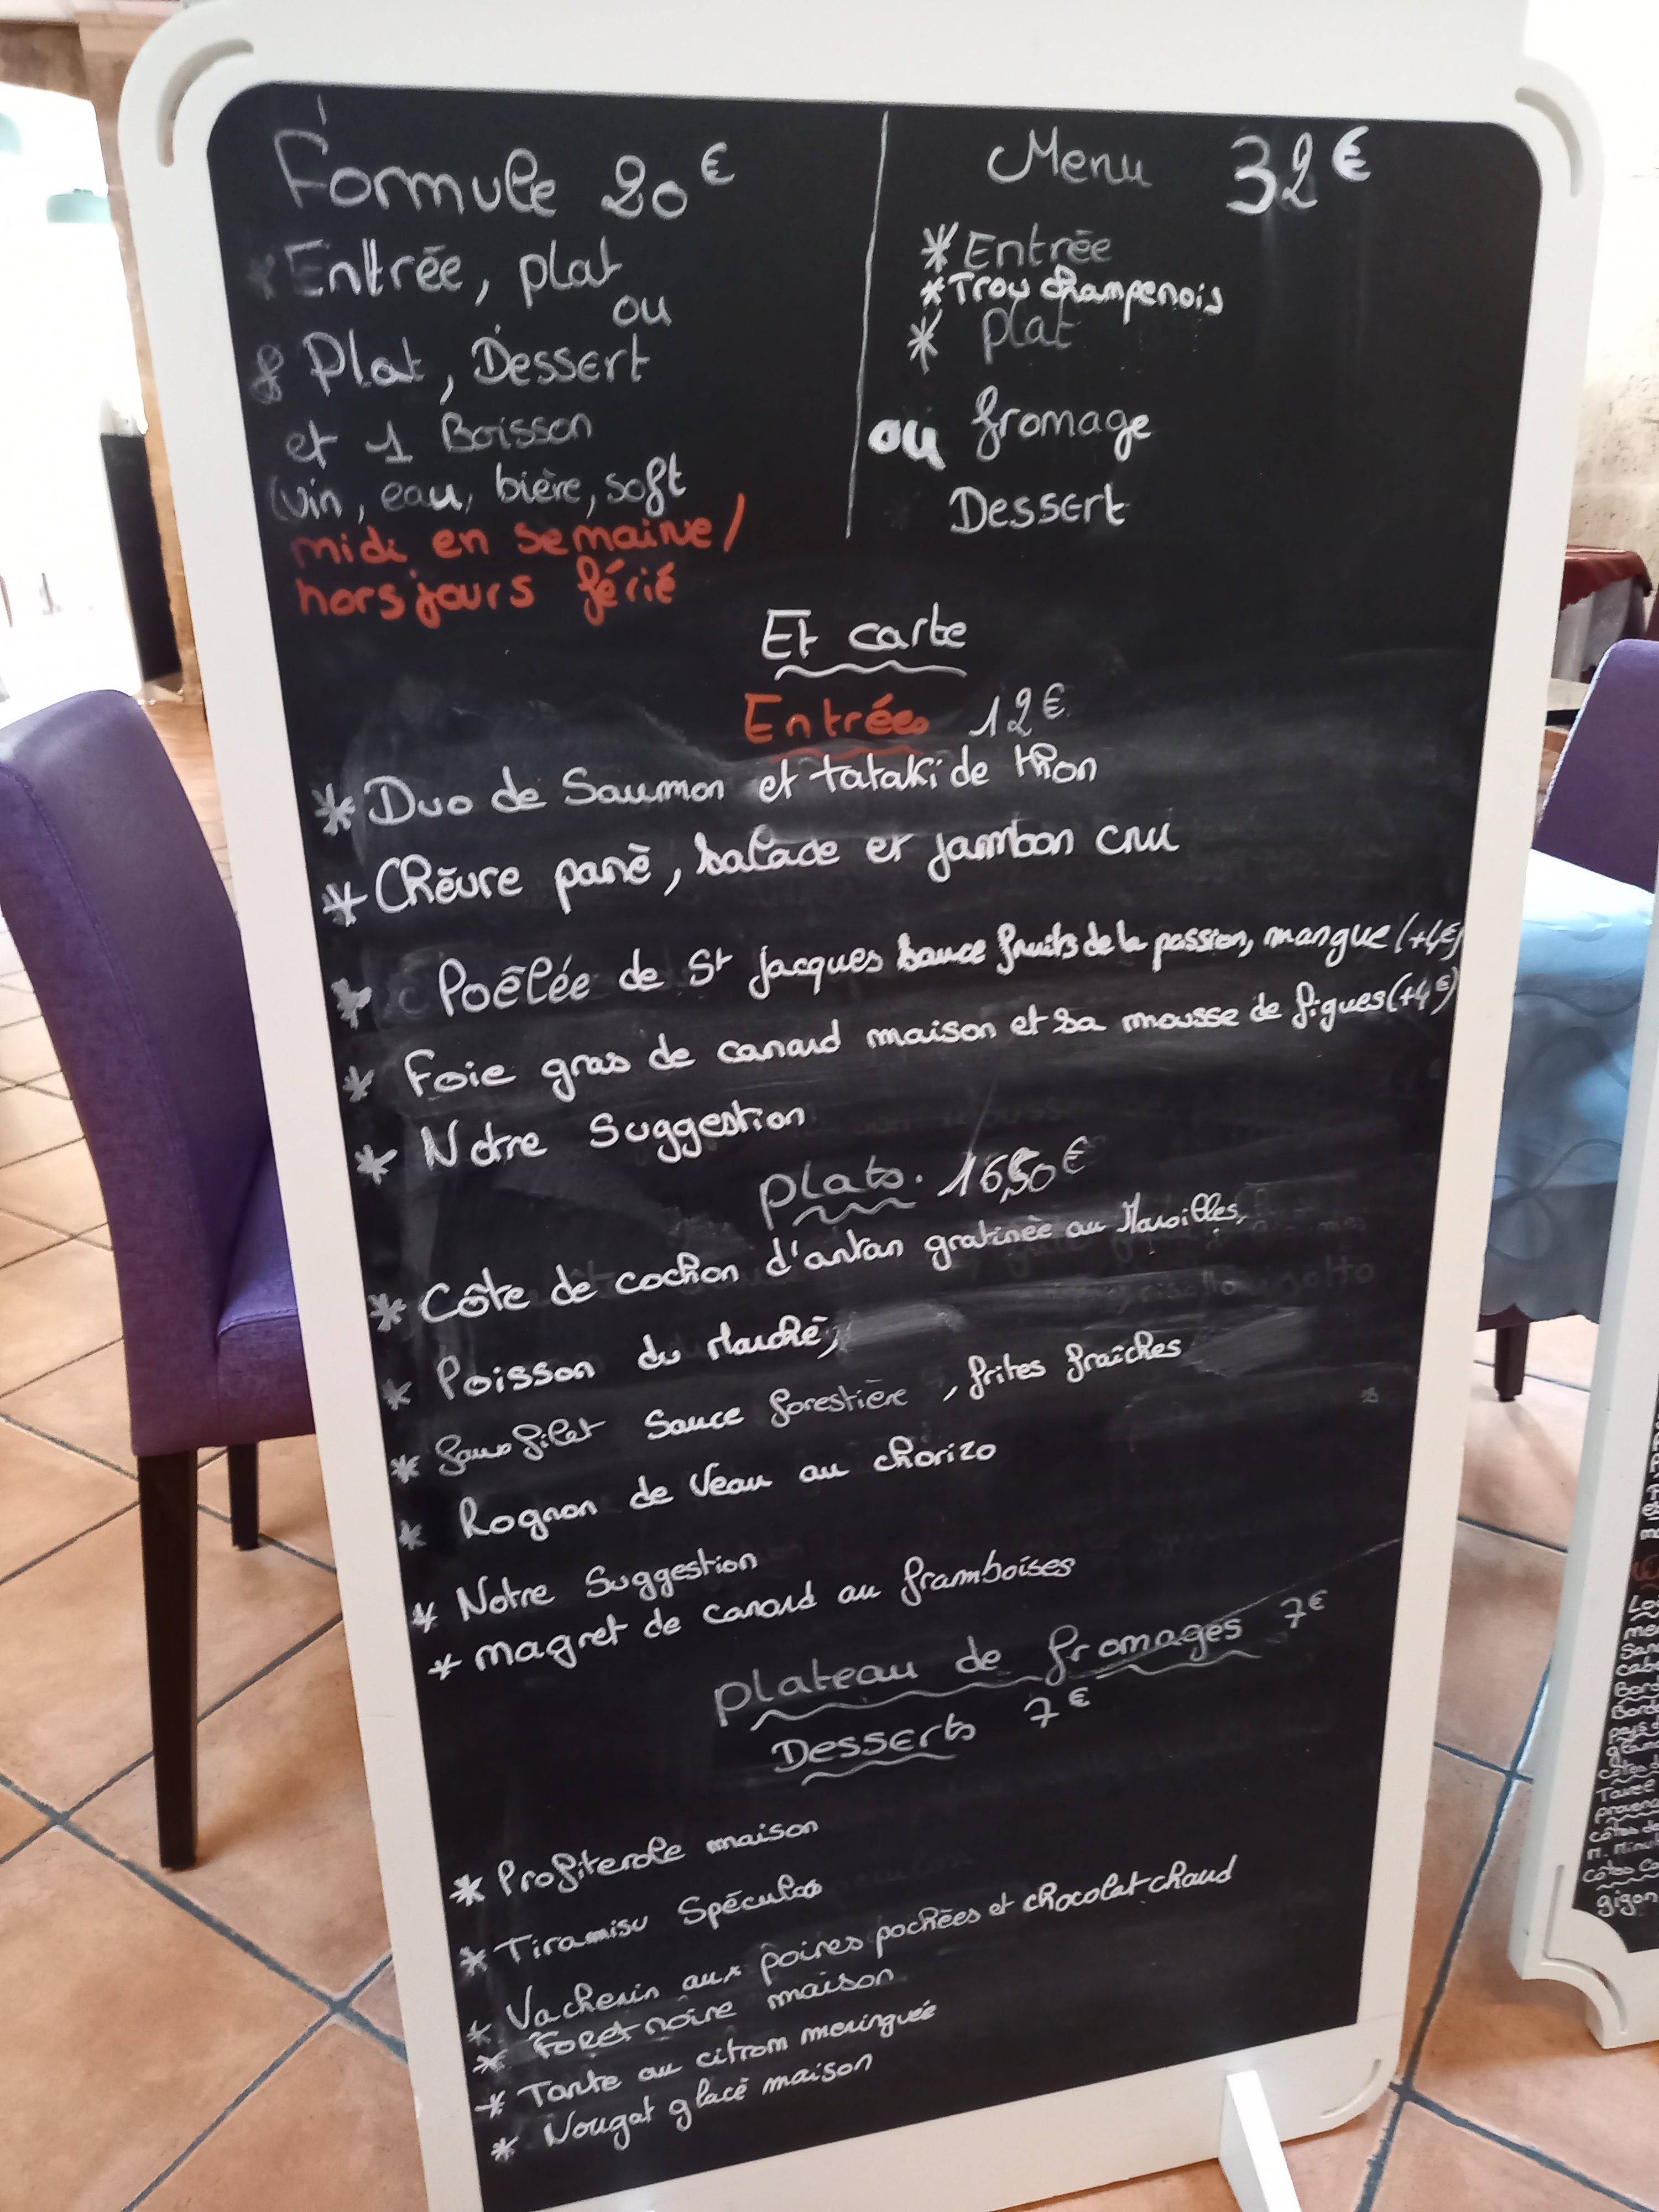 Formule 20€
Entrée, plat
ou
Plat, Dessert
et 1 Boisson
(vin, eau, bière, soft
midi en semaine /
hors jours férié
Menu 32€
* Entrée
* Trou champenois
* plat
ou fromage
Dessert
Et carte
Entrées 12€
* Duo de Saumon et tataki de thon
* Chèvre pané, salade et jambon cru
* Poêlée de St Jacques sauce fruits de la passion, mangue (+4€)
* Foie gras de canard maison et sa mousse de figues (+4€)
* Notre Suggestion
plats. 16,50€
* Côte de cochon d'antan gratinée au Maroilles,
* Poisson du Marché,
* faux filet Sauce forestière, frites fraîches
* Rognon de Veau au chorizo
* Notre Suggestion
* magret de canard au framboises
plateau de fromages 7€
Desserts 7€
* Profiterole maison
* Tiramisu Spéculos
* Vacherin aux poires pochées et chocolat chaud
* Foret noire maison
* Tarte au citron meringuée
* Nougat glacé maison